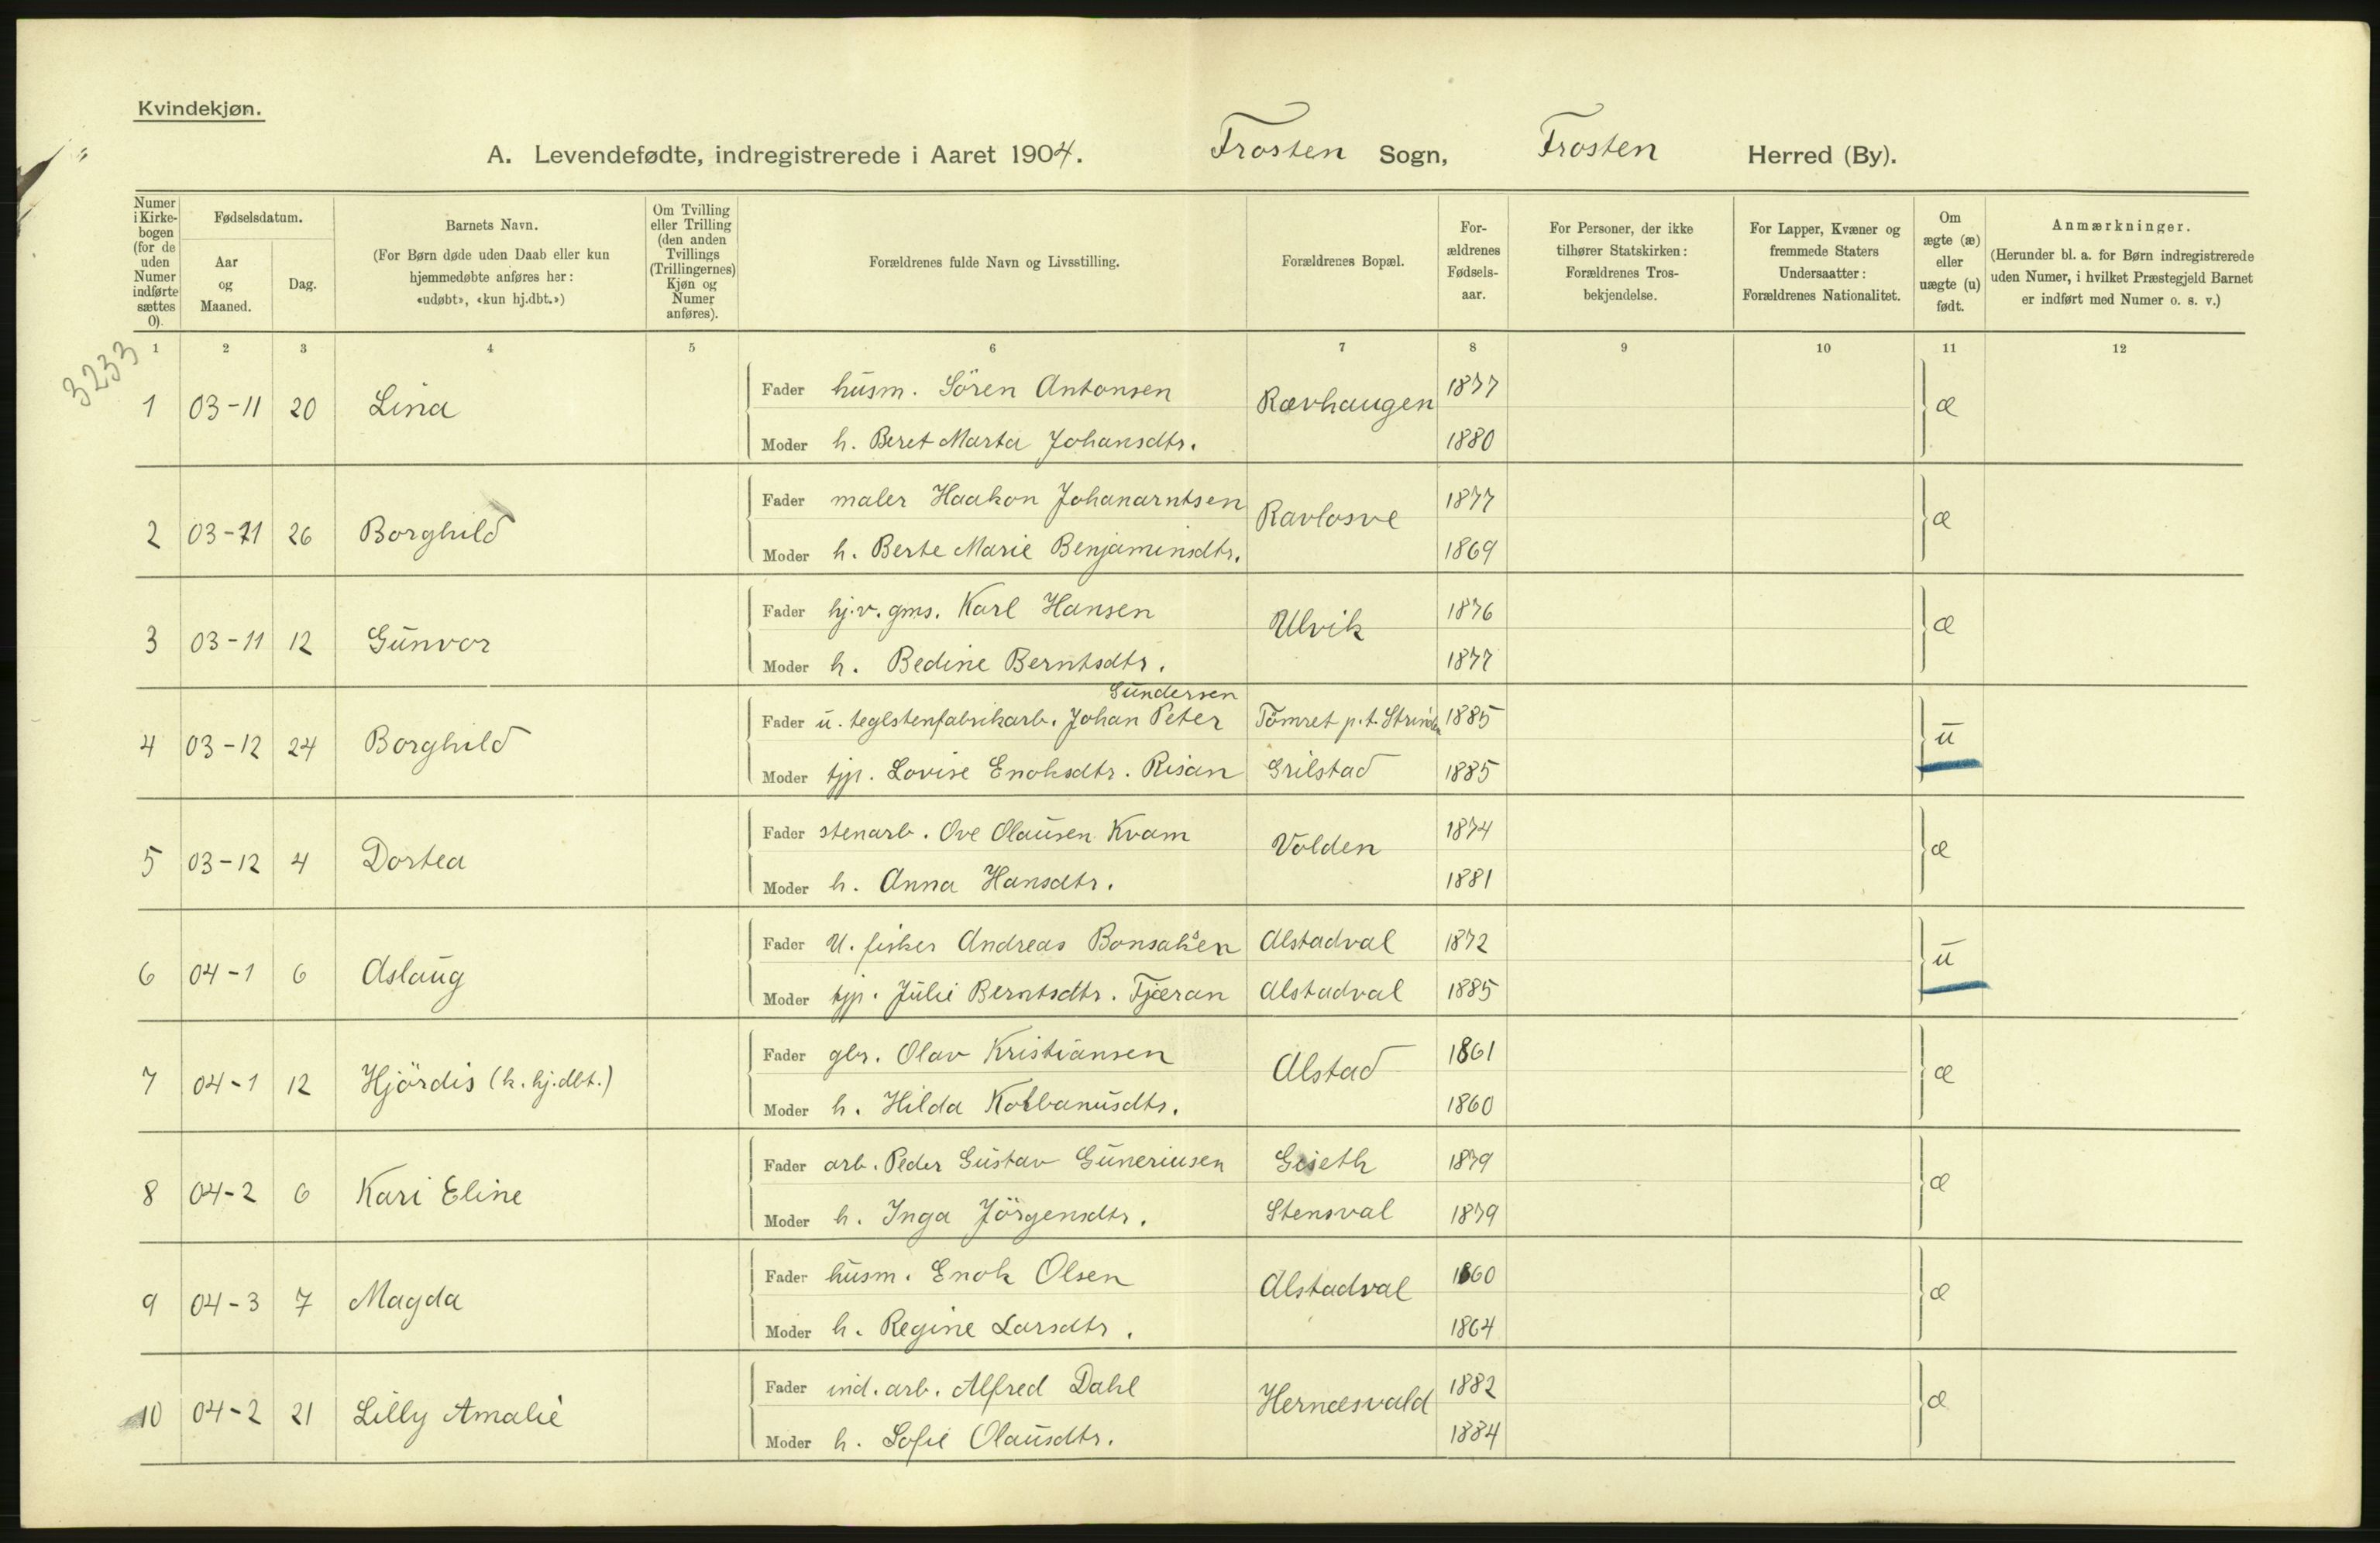 Kvindekjøn.
A. Levendefødte, indregistrerede i Aaret 1904. Frosten Sogn, Frosten Herred (By).
Numer i Kirkebogen (for de uden Numer indførte sættes 0).
Fødselsdatum.
Aar og Maaned.
Dag.
Barnets Navn.
(For Børn døde uden Daab eller kun hjemmedøbte anføres her: «udøbt», «kun hj.dbt.»)
Om Tvilling eller Trilling (den anden Tvillings (Trillingernes) Kjøn og Numer anføres).
Forældrenes fulde Navn og Livsstilling.
Forældrenes Bopæl.
Forældrenes Fødselsaar.
For Personer, der ikke tilhører Statskirken: Forældrenes Trosbekjendelse.
For Lapper, Kvæner og fremmede Staters Undersaatter: Forældrenes Nationalitet.
Om ægte (æ) eller uægte (u) født.
Anmærkninger.
(Herunder bl. a. for Børn indregistrerede uden Numer, i hvilket Præstegjeld Barnet er indført med Numer o. s. v.)
1 2 3 4 5 6 7 8 9 10 11 12
3233
1 03-11 20 Lina Fader husm. Sören Antonsen Rævhaugen 1877 æ
Moder h. Beret Marta Johansdtr. 1880
2 03-11 26 Borghild Fader maler Haakon Johanarntsen Ravlosve 1877 æ
Moder h. Berte Marie Benjaminsdtr. 1869
3 03-11 12 Gunvor Fader hj.v. gms. Karl Hansen Ulvik 1876 æ
Moder h. Bedine Berntsdtr. 1877
Gundersen
4 03-12 24 Borghild Fader u. teglstenfabrikarb. Johan Peter Tömret p.t. Strinden 1885 u
Moder tjp. Lovise Enoksdtr. Risan Grilstad 1885
5 03-12 4 Dortea Fader stenarb. Ove Olausen Kvam Volden 1874 æ
Moder h. Anna Hansdtr. 1881
6 04-1 6 Aslaug Fader U. fisker Andreas Bonsaksen Alstadval 1872 u
Moder tjp. Julie Berntsdtr. Tjæran Alstadval 1885
7 04-1 12 Hjördis (k. hj.dbt.) Fader gbr. Olav Kristiansen Alstad 1861 æ
Moder h. Hilda Kolbanusdtr. 1860
8 04-2 6 Kari Eline Fader arb. Peder Gustav Guneriusen 1879 æ
Moder h. Inga Jörgensdtr. Stensval 1879
9 04-3 7 Magda Fader husm. Enok Olsen Alstadval 1860 æ
Moder h. Regine Larsdtr. 1864
10 04-2 21 Lilly Amalie Fader ind. arb. Alfred Dahl Hernæsvald 1882 æ
Moder h. Sofie Olausdtr. 1884